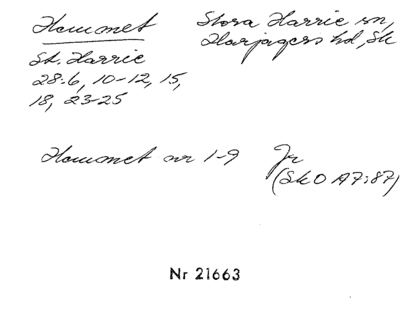 Hammet
Stora Harrie sn,
Harjagers hd, Sk
St. Harrie
28:6, 10-12, 15,
18, 23-25
Hammet nr 1-9
Jr
(SkO A7:87)
Nr 21663